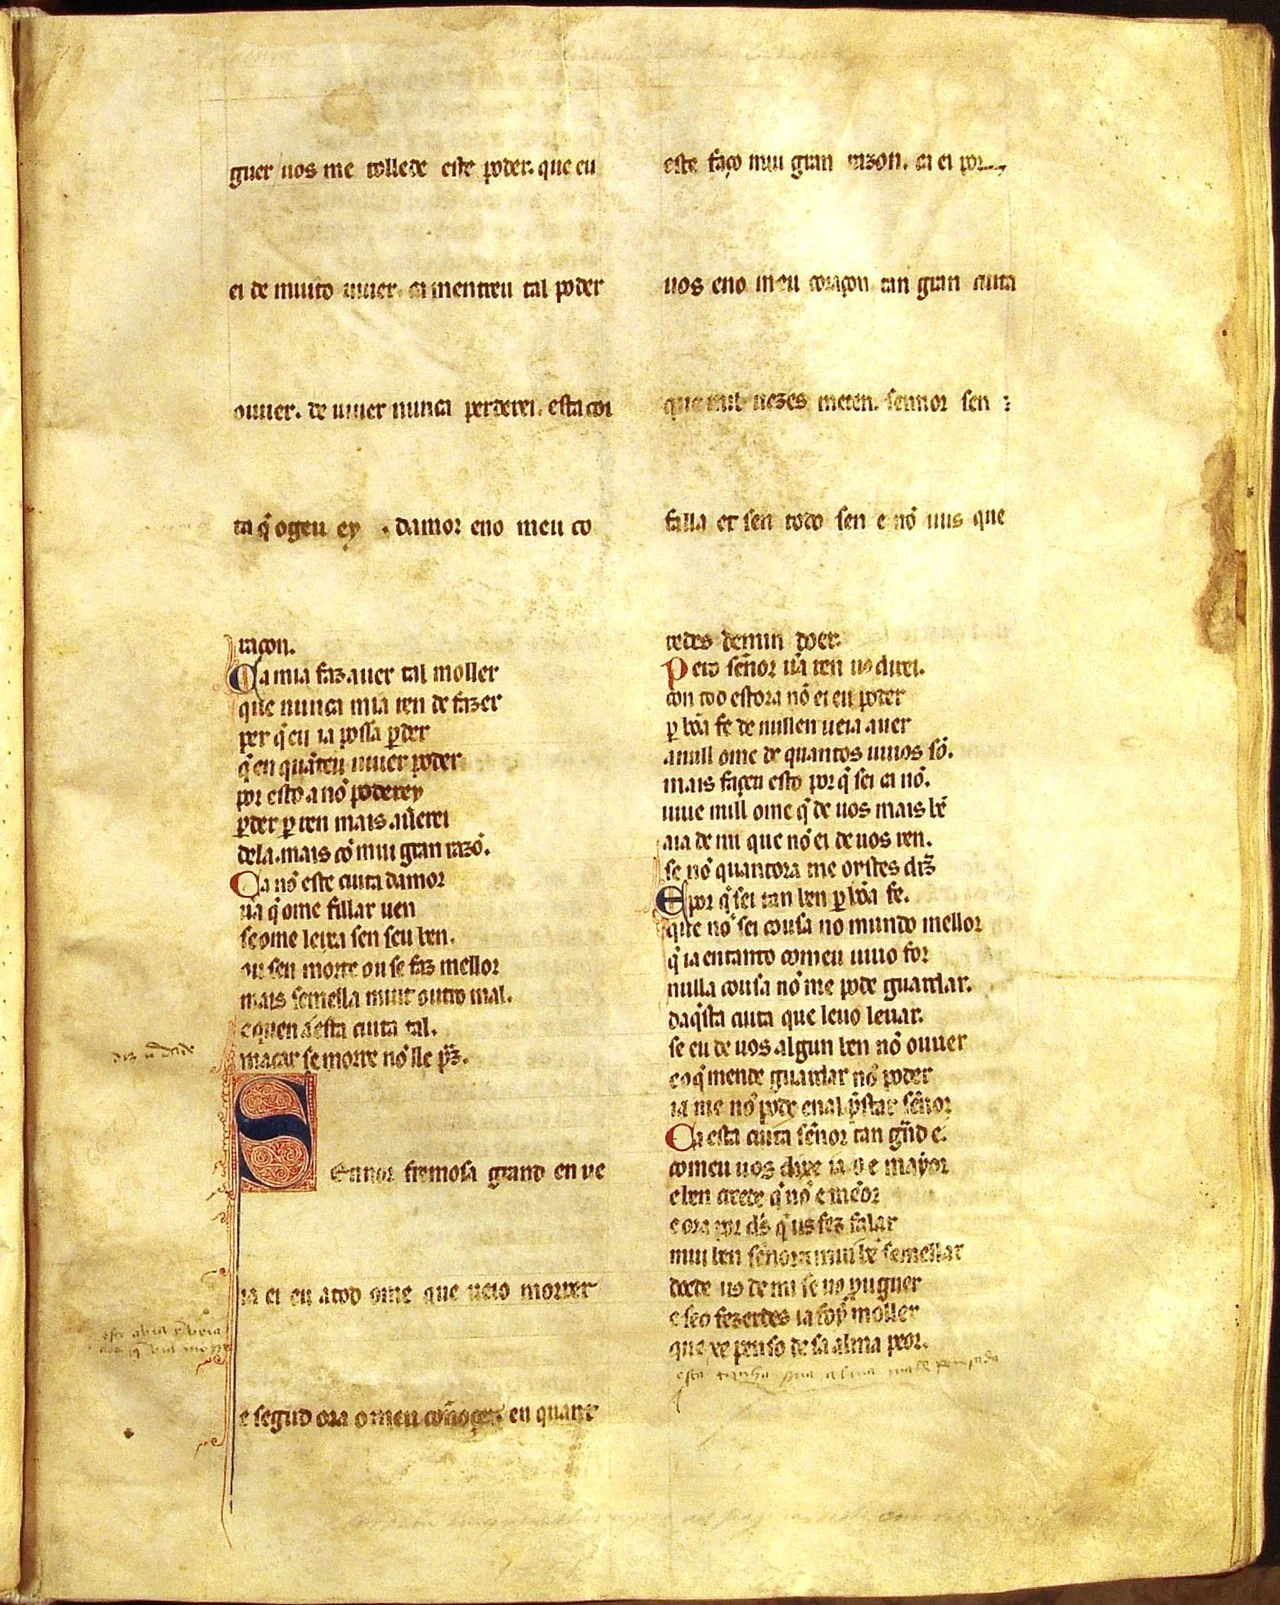 guer uos me tollede este poder. que eu
ei de muito uiuer. ca mentreu tal poder
ouuer. de uiuer nunca perderei. esta coi
ta q̃ ogeu ey . damor eno meu co
raçon.
Ca mia faz auer tal moller
que nunca mia ren de fazer
per q̃ eu ia possa ꝑder
q̃ en quãteu uiuer poder
por esto a nõ poderey
ꝑder ꝑ ren mais auerei
dela. mais cõ mui gran razõ.
Ca nõ este cuita damor
ũa q̃ ome fillar uen
se ome leixa sen seu ben.
ou seu morre ou se faz mellor
mais semella muit outro mal.
e quen á esta cuita tal.
macar se morre nõ lle pz̃.
diz ṽdade
Sennor fremosa grand en ue
ia ei eu a tod ome que ueio morrer
e segũd ora o meu coñoçer en quant
este faço mui gran razon. ca ei por
uos eno meu coraçon tan gran cuita
que mil uezes meten. sennor sen
falla et sen todo sen e nõ uus que
redes de min doer.
Pero sẽñor ũa ren uº direi.
con too est ora nõ ei eu poder
ꝑ bõa fe de nullen ueia auer
a null ome de quantos uiuos sõ.
mais façeu esto por q̃ sei ca nõ.
uiue null ome q̃ de uos mais bẽ
aia de mi que nõ ei de uos ren.
se nõ quant ora me oistes diz̃
E por q̃ sei tan ben ꝑ bõa fe.
que nõ sei cousa no mundo mellor
q̃ ia entanto comeu uiuo for
nulla cousa nõ me pode guardar.
daq̃sta cuita que leuo leuar.
se eu de uos algun ben nõ ouuer
e o q̃ mende guardar nõ poder
ia me nõ pode en al p̃star sẽñor
Ca esta cuita sẽñor tan gñd e.
comeu uos dixe ia o e mayor
e ben creede q̃ nõ e mẽor
e ora por ds̃ q̃ us fez falar
mui ben sẽñor a mui bẽ semellar
doede uº de mi se uº prouguer
e se o fezerdes ia soy moller
que xe penso de sa alma peor.
esta tynha sua alma mall pensada